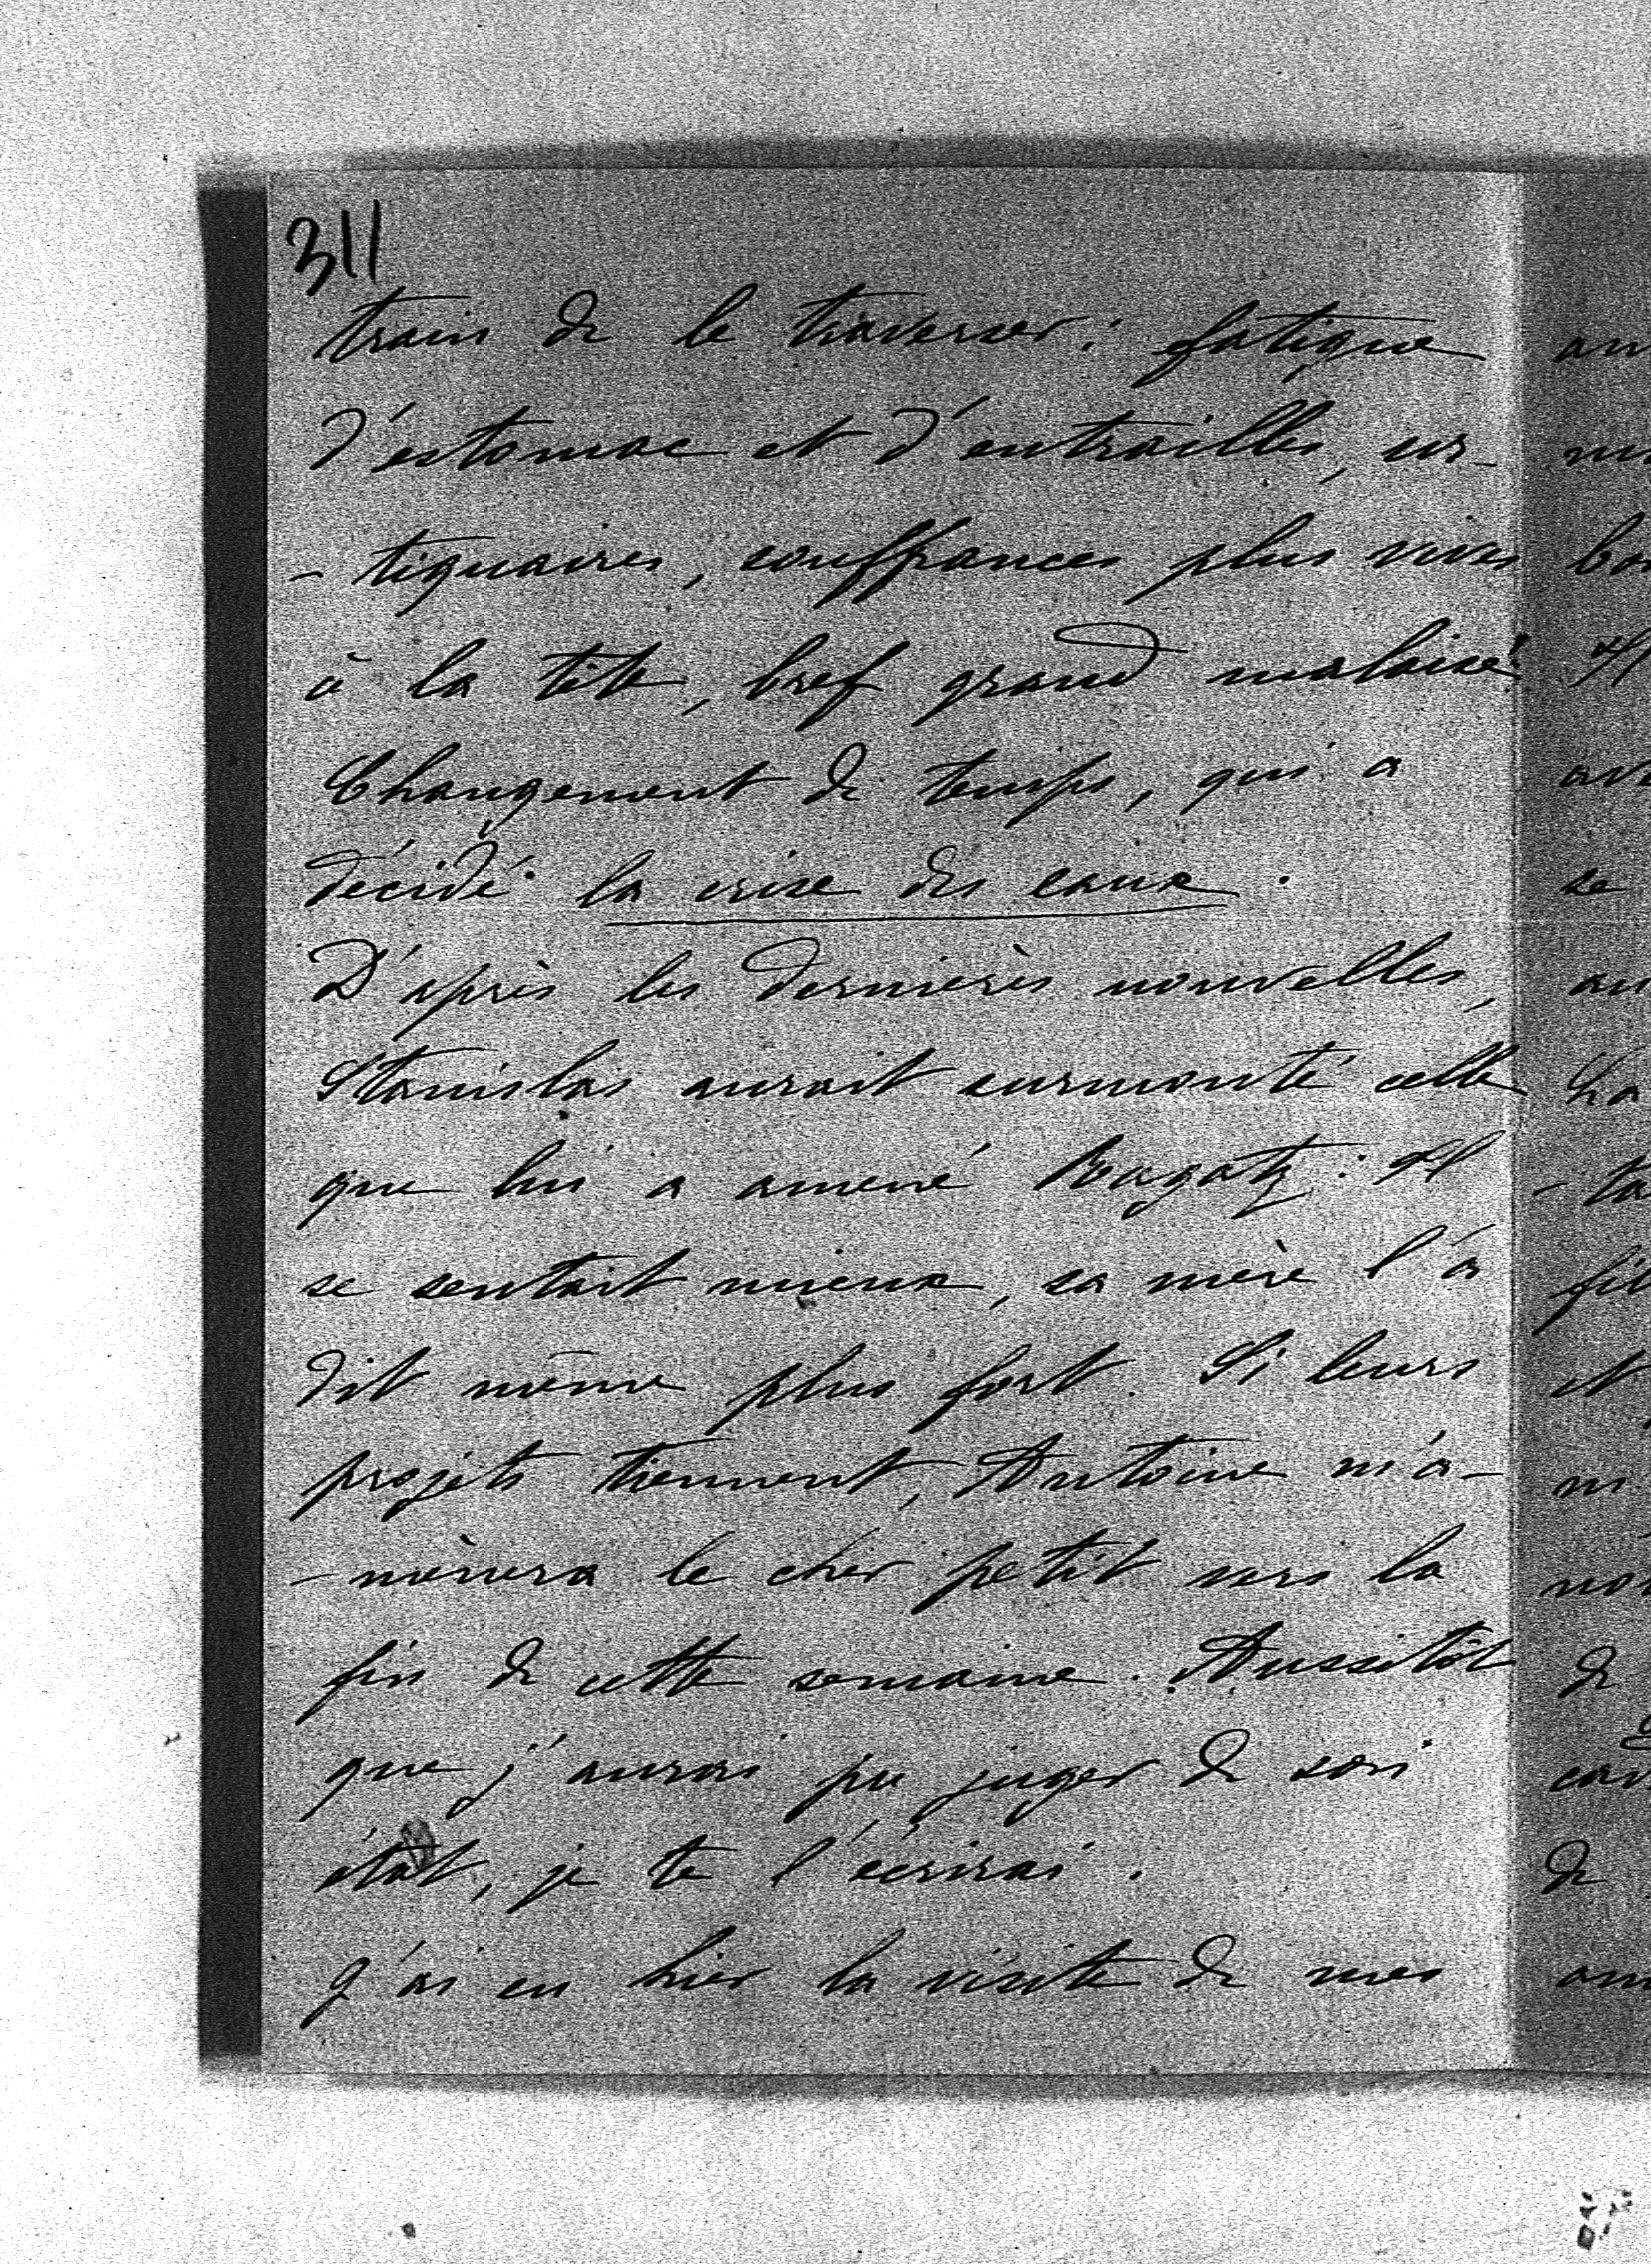 311
train de le traverser : fatigue
d'estomac et d'entrailles, ur-
- tiquaires, souffrances plus vives
à la tête, bref grand malaise.
Changement de temps, qui a
décidé la crise des eaux.
D'après les dernières nouvelles,
Stanislas aurait surmonté celle
que lui a amené Ragatz : Il
se sentait mieux, sa mère l'a
dit même plus fort. Si leurs
projets tiennent, Antoine m'a-
- mènera le cher petit vers la
fin de cette semaine. Aussitôt
que j'aurai pu juger de son
état, je te l'écrirai.
J'ai eu hier la visite de mes